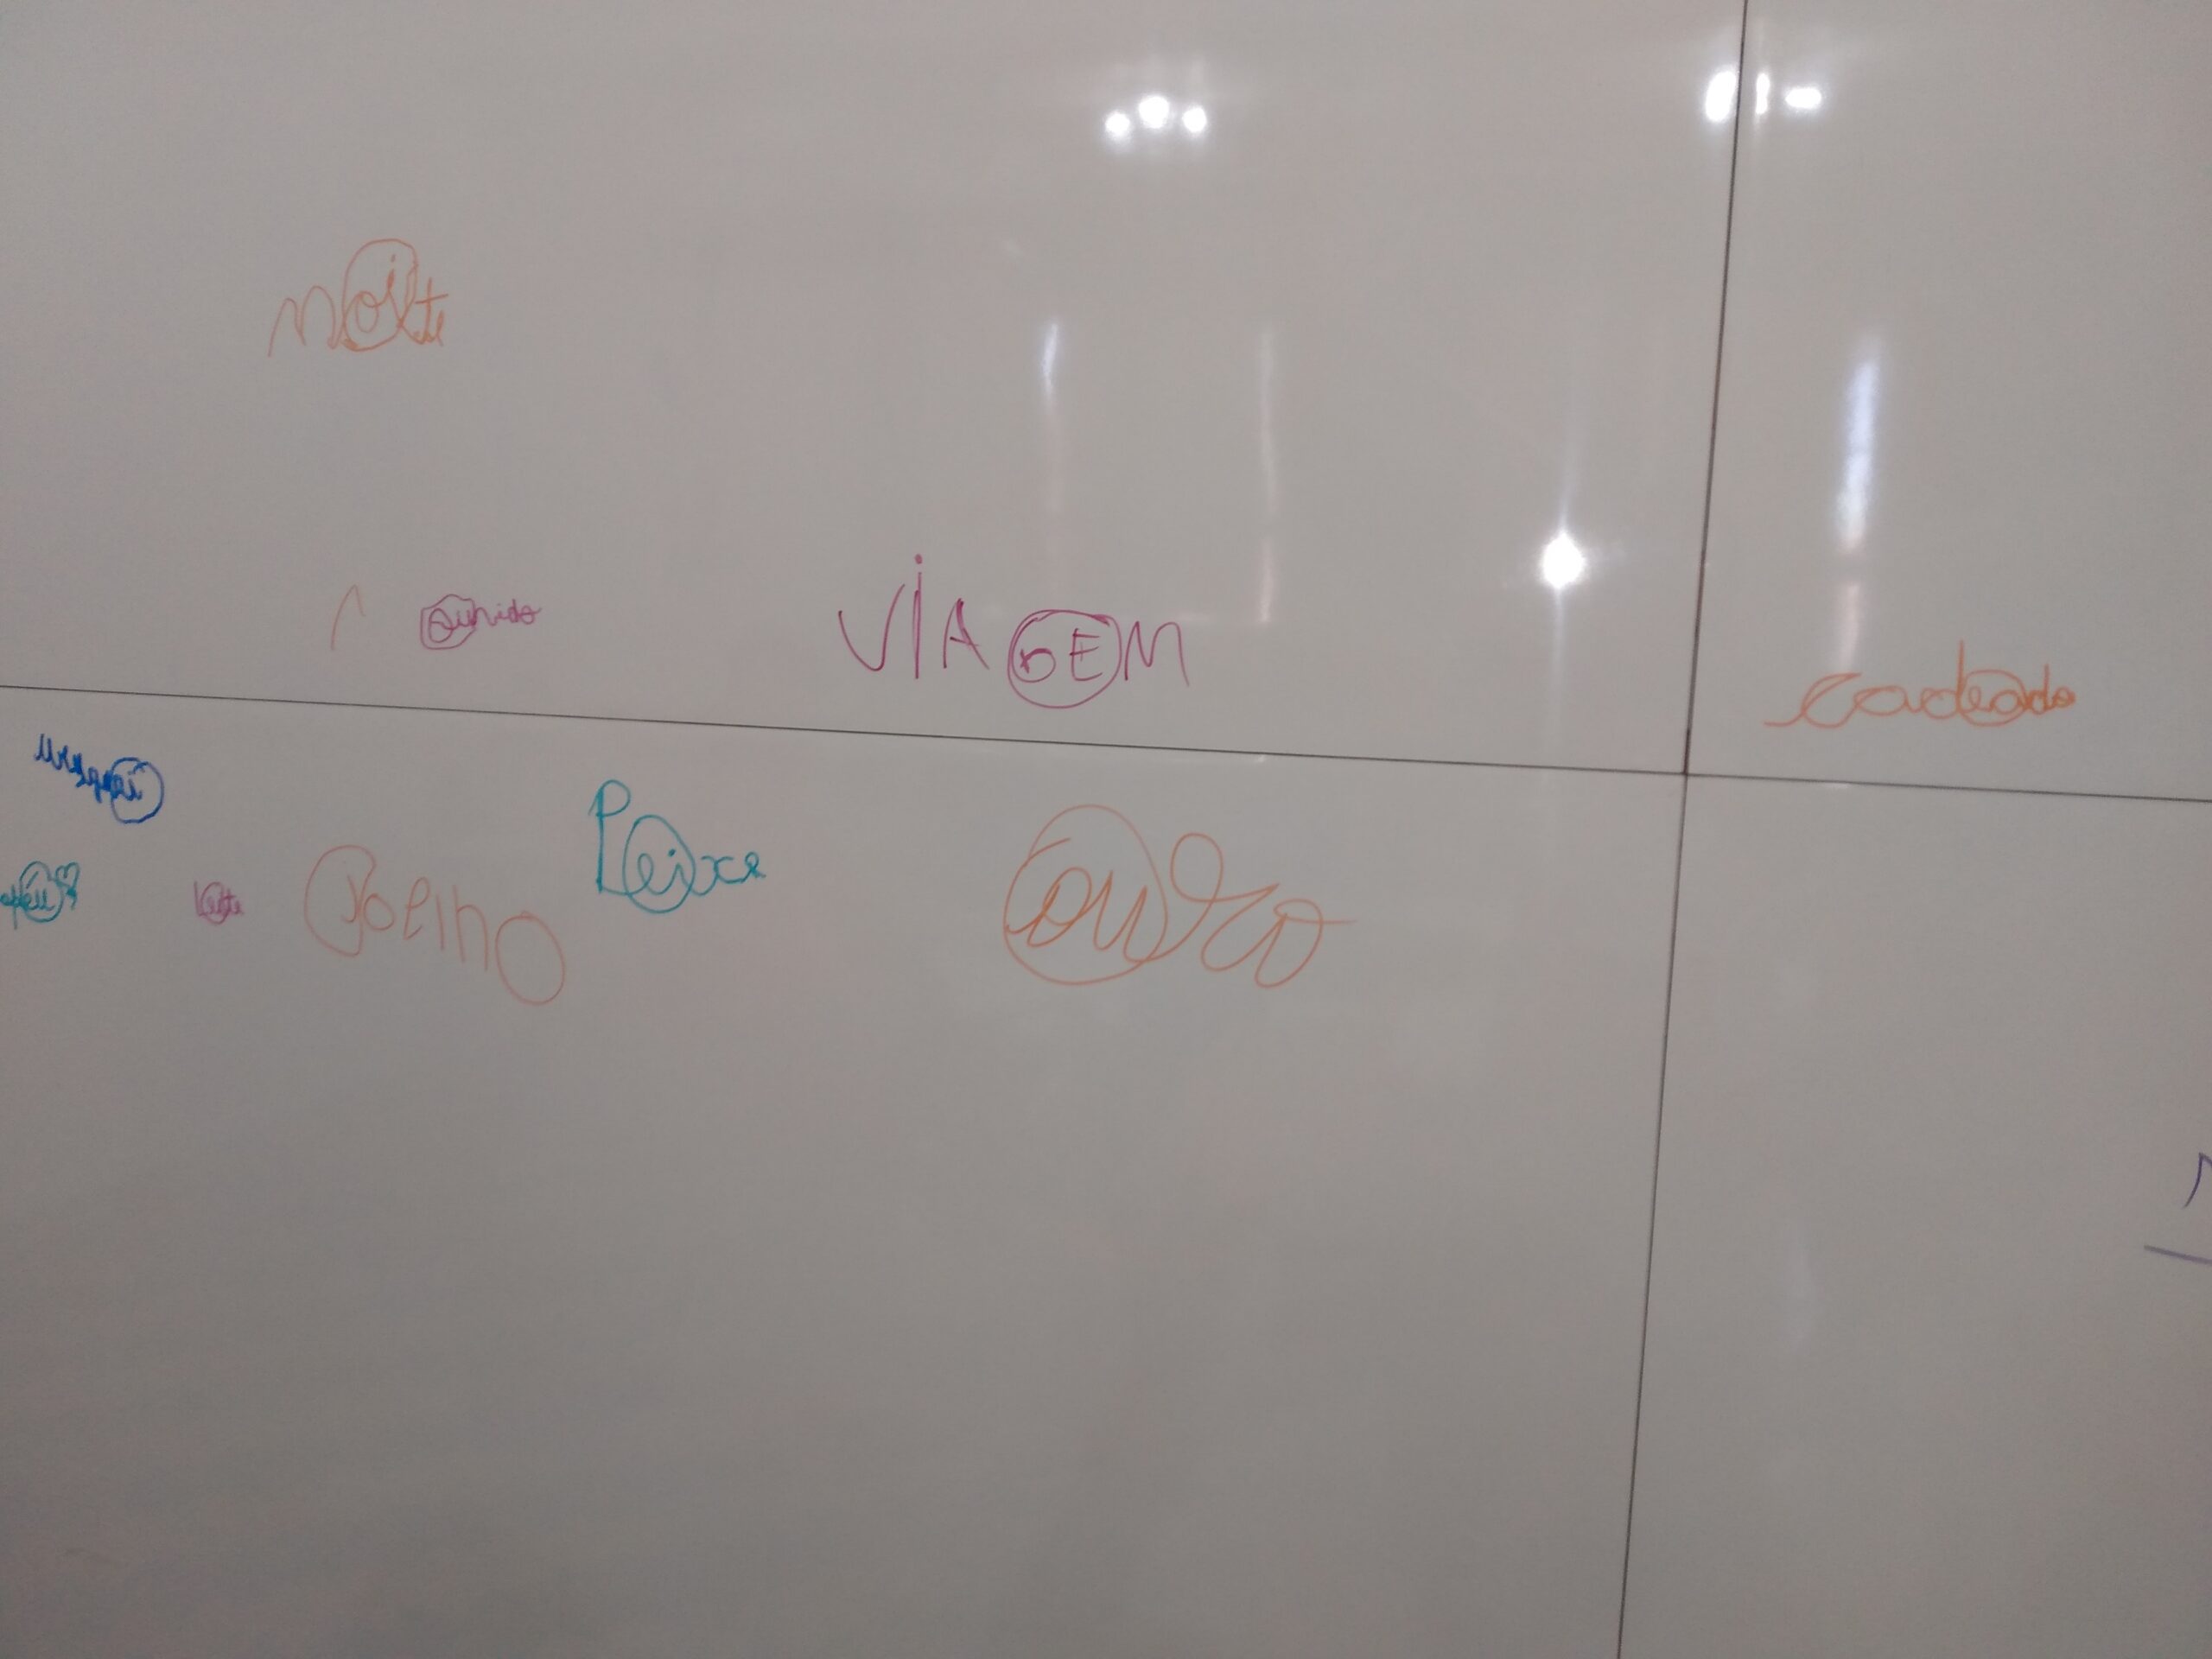 noite
ouvido
VIAGEM
cadeado
Peixe
Leite
Joelho
ouro